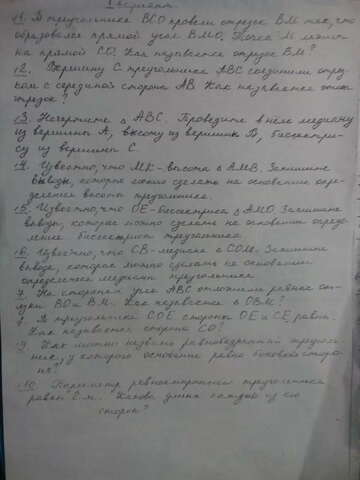 I вариант.
1. В треугольнике ВСО провели отрезок ВМ так, что
образовался прямой угол ВМО. Точка М лежит
на прямой СО. Как называется отрезок ВМ?
2. Вершину С треугольника АВС соединили отрез
ком с серединой стороны АВ. Как называется этот
отрезок?
3. Начертите △ АВС. Проведите в нём медиану
из вершины А, высоту из вершины В, биссектри-
су из вершины С.
4. Известно, что МК - высота △ АМВ. Запишите
выводы, которые можно сделать на основании опре-
деления высоты треугольника.
5. Известно, что ОЕ - биссектриса △ АМО. Запишите
выводы, которые можно сделать на основании опреде
ления биссектрисы треугольника.
6. Известно, что СВ - медиана △ СОМ. Запишите
выводы, которые можно сделать на основании
определения медианы треугольника.
7. На сторонах угла АВС отложили равные от-
резки ВО и ВМ. Как называется △ ОВМ?
В треугольнике СОЕ стороны ОЕ и СЕ равны.
Как называется сторона СО?
9. Как можно назвать равнобедренный треуголь-
ник, у которого основание равно боковой сторо-
не?
10. Периметр равностороннего треугольника
равен см. Какова длина каждой из его
сторон?